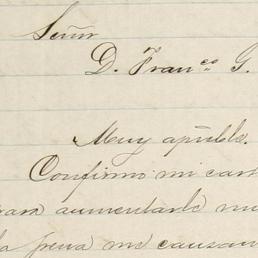 Señor
D. Franco G.
Muy apible.
Confirmo mi car
para aumentarle mi
la pena me causan